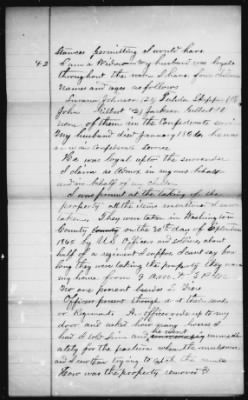 42 stances permitting I would have
I am a Widow my husband was loyal
throughout the war I have four children
names and ages as follows
Susana Johnson 24
John Gilbert 21 Jackson Gilbert 18
none of them in the Confederate servi
My husband died January 1864 he was
in Confederate service
He was loyal up to the surrender
I claim as Widow in my own behalf
and in behalf of my children
I was present at the taking of the
property all the items mentioned I saw
taken. They were taken in Washington
County County on the 20th day of September
186 by U.S. Officers and soldiers about
half of a regiment I suppose I cant say how
long they were taking the property they were
at my house from 9 A.M. to 3 P.M.
No one present besides
Officers present though I dont know
or Regiments He officer rode up to my
door and asked how many horses I
had I told him and he went immedi
ately for the pasture when the mules were
and I saw them trying to catch the mules
How was the property removed